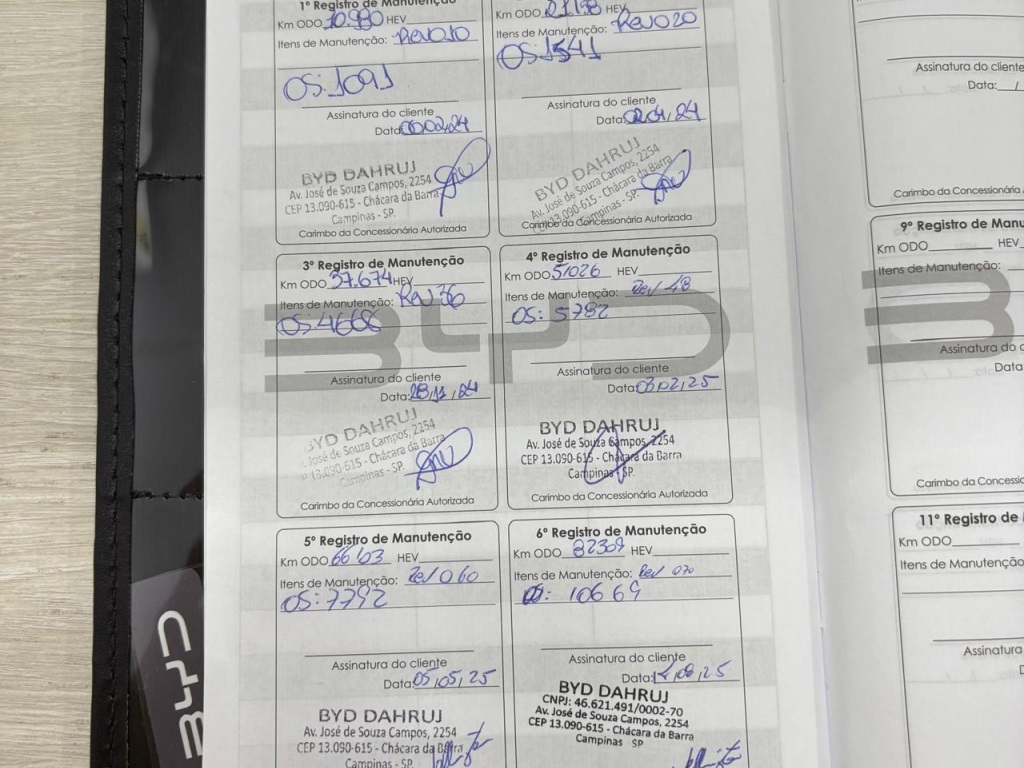 1º Registro de Manutenção
Km ODO 10.980 HEV
Itens de Manutenção: Rev010
OS:1091
Assinatura do cliente
Data:
BYD DAHRUJ
Av. José de Souza Campos, 2254
CEP 13.090-615 - Chácara da Barra
Campinas - SP.
Carimbo da Concessionária Autorizada
Km ODO HEV
Itens de Manutenção: Rev020
OS:1541
Assinatura do cliente
Data:02,04,24
BYD DAHRUJ
Av. José de Souza Campos, 2254
CEP 13.090-615 - Chácara da Barra
Campinas - SP.
Carimbo da Concessionária Autorizada
3º Registro de Manutenção
Km ODO 37.674 HEV
Itens de Manutenção: Rev 36
OS:4668
Assinatura do cliente
Data:28,11,24
BYD DAHRUJ
José de Souza Campos, 2254
13.090-615 - Chácara da Barra
Campinas - SP.
Carimbo da Concessionária Autorizada
4º Registro de Manutenção
Km ODO 51026 HEV
Itens de Manutenção: Rev 48
OS: 5782
Assinatura do cliente
Data:03,02,25
BYD DAHRUJ
Av. José de Souza Campos, 2254
CEP 13.090-615 - Chácara da Barra
Campinas - SP.
Carimbo da Concessionária Autorizada
5º Registro de Manutenção
Km ODO 66103 HEV
Itens de Manutenção: Rev 060
OS:7792
Assinatura do cliente
Data:05,05,25
BYD DAHRUJ
Av. José de Souza Campos, 2254
CEP 13.090-615 - Chácara da Barra
Campinas - SP.
6º Registro de Manutenção
Km ODO 82309 HEV
Itens de Manutenção: Rev 070
OS: 10669
Assinatura do cliente
Data:
BYD DAHRUJ
CNPJ: 46.621.491/0002-70
Av. José de Souza Campos, 2254
CEP 13.090-615 - Chácara da Barra
Campinas SP
BYD
BYD
Assinatura do cliente
Data: /
Carimbo da Concessionária
9º Registro de
Km ODO HEV
Itens de Manutenção:
Assinatura do
Data:
Carimbo da
11º Registro de
Km ODO
Itens de Manutenção
Assinatura